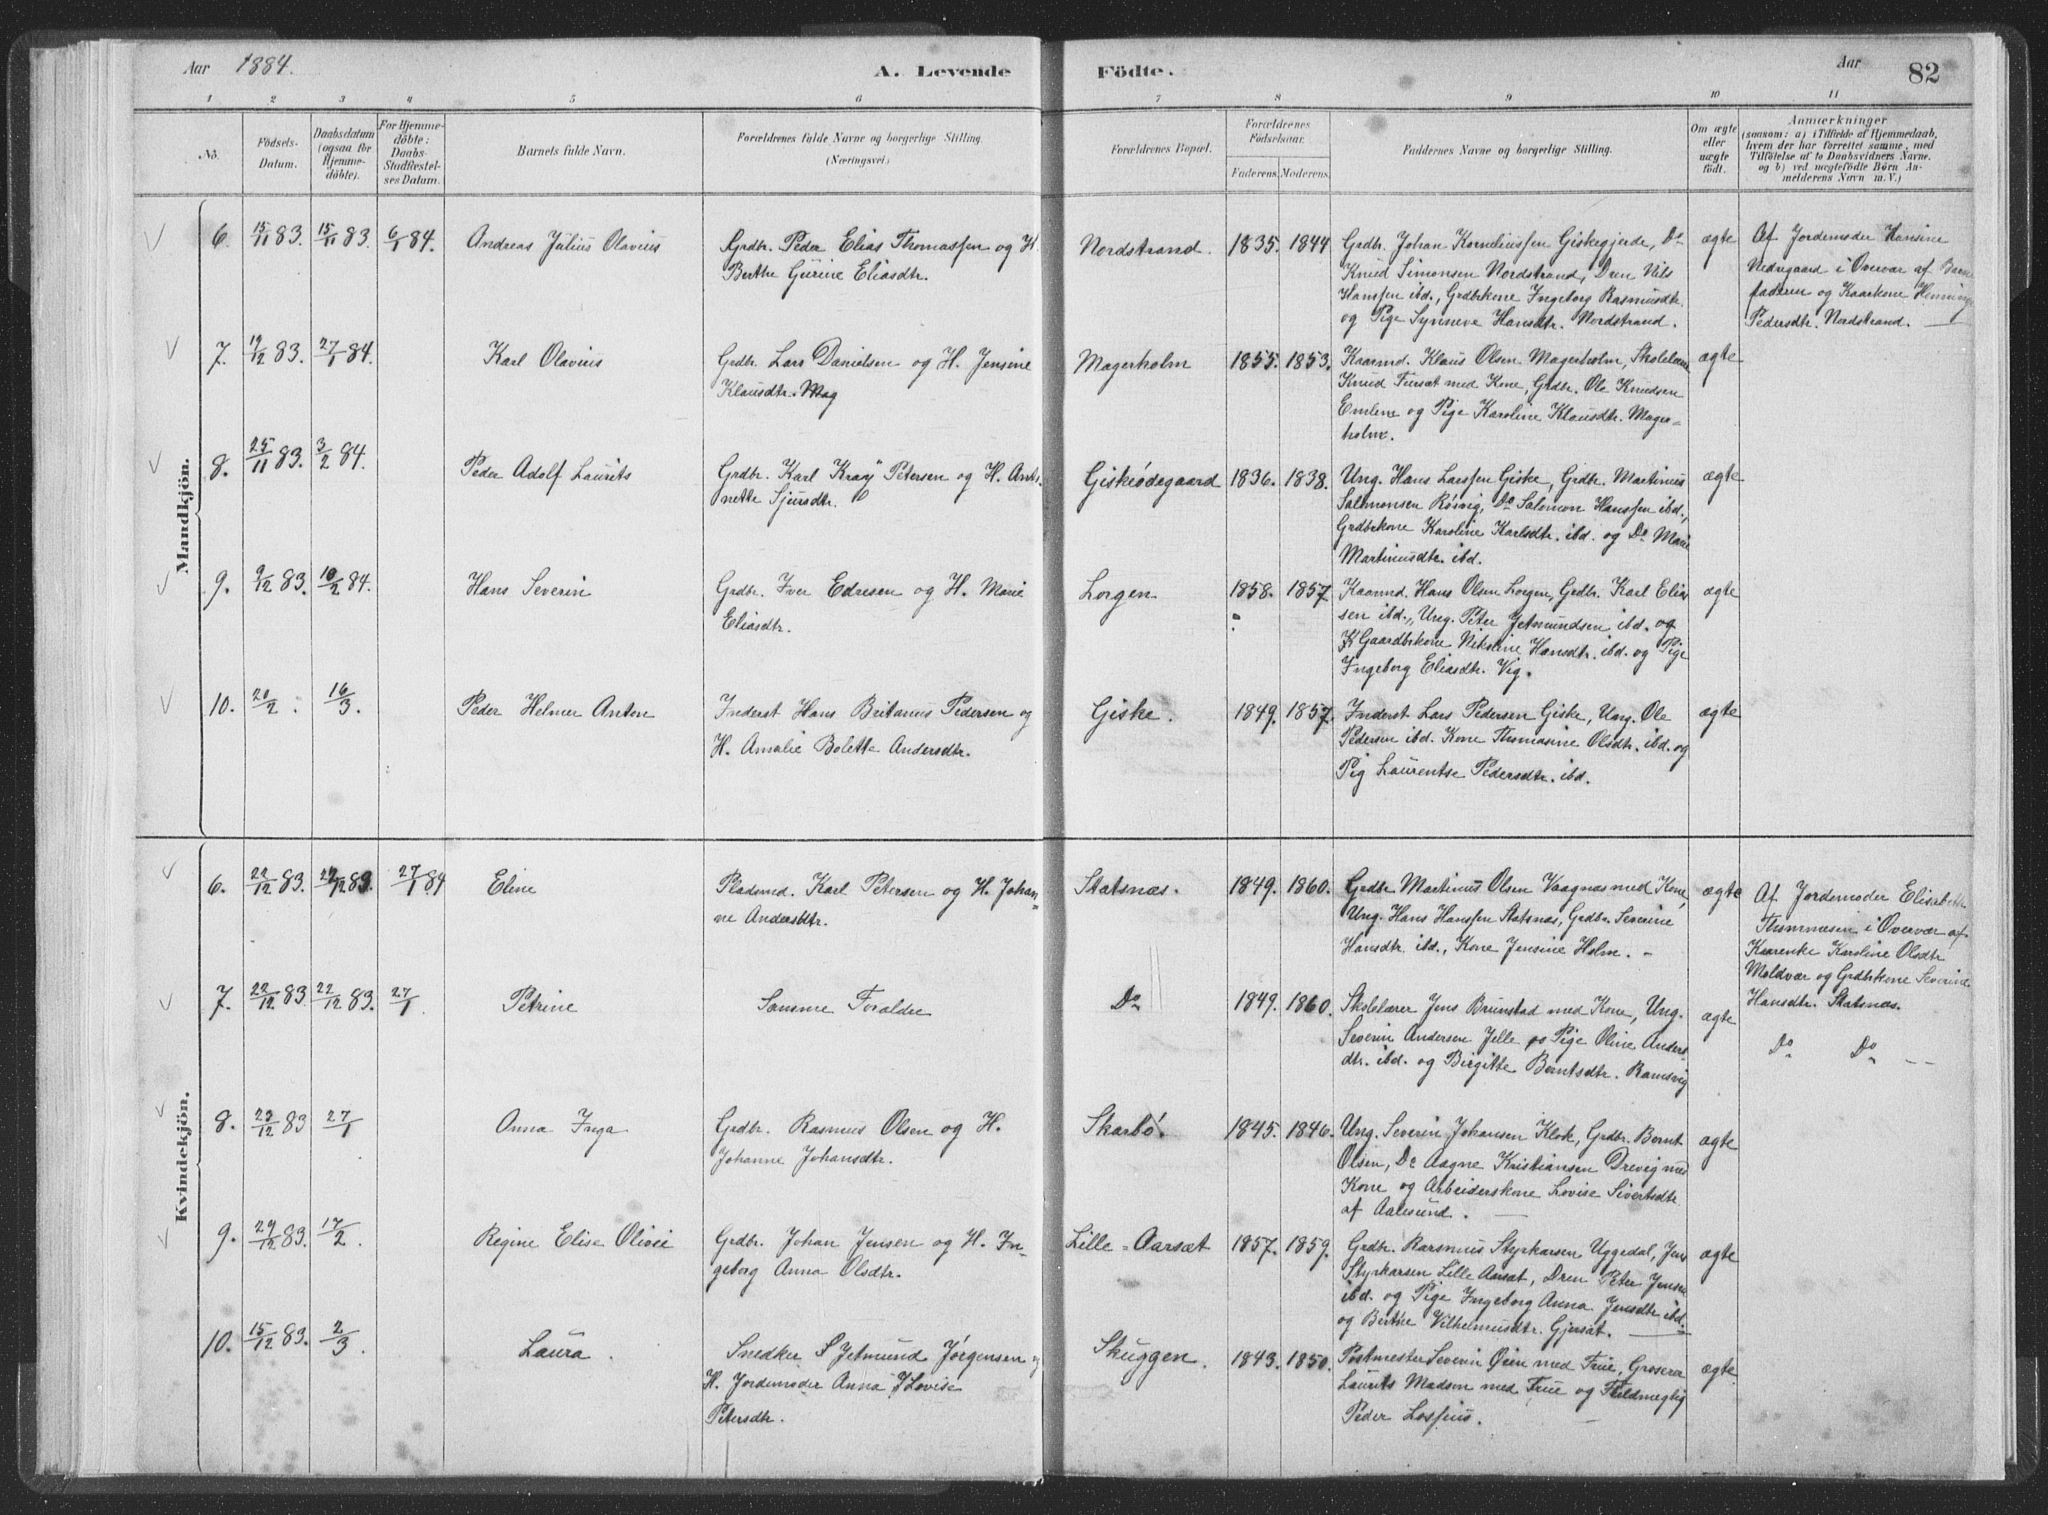 Aar 1884.
A. Levende Födte.
Aar
82
1 2 3 4 5 6 7 8 9 10 11
No.
Födsels-
Datum.
Daabsdatum
(ogsaa for
Hjemme-
döbte).
For Hjemme-
döbte:
Daabs-
Stadfæstel-
ses Datum.
Barnets fulde Navn.
Forældrenes fulde Navne og borgerlige Stilling
(Næringsvei).
Forældrenes Bopæl.
Forældrenes
Födselsaar.
Faderens. Moderens.
Faddernes Navne og borgerlige Stilling.
Om ægte
eller
uægte
födt.
Anmærkninger
(saasom: a) i Tilfælde af Hjemmedaab,
hvem der har forrettet samme, med
Tilföielse af to Daabsvidners Navne,
og b) ved uægtefödte Börn An-
melderens Navn m. V.)
Mandkjön.
6. 15/11 83. 15/11 83. 6/1 84. Andreas Julius Olavius
Grdbr. Peder Elias Thomassen og H.
Berthe Gurine Eliasdtr.
Nordstrand. 1835. 1844
Grdbr. Johan Korneliussen Giskegjerde, Do
Knud Simonsen Nordstrand, Dren Nils
Hanssen ibd., Grdbrkone Ingeborg Rasmusdtr.
og Pige Synneve Hansdtr. Nordstrand.
ægte
Af Jordemoder Hansine
Nedregaard i Overvær af Barne
faderen og Kaarkone Henninge
Pedersdtr. Nordstrand.
7. 19/12 83. 27/1 84. Karl Olavius
Grdbr. Lars Danielsen og H. Jensine
Klausdtr. Mag
Magerholm 1855. 1853.
Kaarmd. Klaus Olsen Magerholm, Skolelærer
Knud Fursæt med Kone, Grdbr. Ole Knudsen
Emlene og Pige Karoline Klausdtr. Mager=
holm.
ægte
8. 25/11 83. 3/2 84. Peder Adolf Laurits
Grdbr. Karl Kraÿ Petersen og H. Ant
nette Sjursdtr.
Giskeödegaard 1836. 1838.
Ung. Hans Larssen Giske, Grdbr. Martinus
Salmonsen Rösvig, Do Salomon Hanssen ibd.,
Grdbrkone Karoline Karlsdtr. ibd. og Do Marie
Martinusdtr. ibd.
ægte
9. 9/12 83. 10/2 84. Hans Severin
Grdbr. Iver Edresen og H. Marie
Eliasdtr.
Lorgen 1858. 1857
Kaarmd. Hans Olsen Lorgen, Grdbr. Karl Elias
sen ibd., Ung. Peter Jetmundsen ibd. og
Gaardbrkone Nikoline Hansdtr. ibd. og Pige
Ingeborg Eliasdtr. Vig.
ægte
10. 20/2 16/3. Peder Helmer Anton
Inderst Hans Britanus Pedersen og
H. Amalie Bolette Andersdtr.
Giske. 1849. 1857.
Inderst Lars Pedersen Giske, Ung. Ole
Pedersen ibd. Kone Thomasine Olsdtr. ibd. og
Pig Laurentse Pedersdtr. ibd.
ægte
Kvindekjön.
6. 22/12 83. 22/12 83. 27/1 84 Eline
Pladsmd. Karl Petersen og H. Johan=
ne Andersdtr.
Statsnæs. 1849. 1860.
Grdbr Martinus Olsen Vaagnæs med Kone,
Ung. Hans Hanssen Statsnæs, Grdbr. Severine
Hansdtr. ibd., Kone Jensine Holm.
ægte
Af Jordemoder Elisabeth
Thommesen i Overvær af
Kaarenke Karoline Olsdtr
Moldvær og Grdbrkone Severine
Hansdtr. Statsnæs.
7. 22/12 83. 22/12 83. 27/1. Petrine
Samme Forældre
Do 1849. 1860.
Skolelærer Jens Brunstad med Kone, Ung.
Severin Andersen Jelle Pige Oline Anders
dtr. ibd. og Birgitte Berntsdtr. Ramsvig
ægte
Do Do
8. 22/12 83 27/1 Anna Inga
Grdbr. Rasmus Olsen og H.
Johanne Johansdtr.
Skarbö. 1845. 1846.
Ung. Severin Johansen Klok, Grdbr. Bernt
Olsen, Do Aagne Kristiansen Drevig med
Kone og Arbeiderskone Lovise Sivertsdtr
af Aalesund.
ægte
9. 29/12 83. 17/2. Regine Elise Olivie
Grdbr. Johan Jensen og H. In=
geborg Anna Olsdtr.
Lille=Aarsæt 1857. 1859.
Grdbr. Rasmus Styrkarsen Uggedal, Jens
Styrkarsen Lille Aarsæt, Dren Peter Jensen
ibd. og Pige Ingeborg Anna Jensdtr ibd.
og Berthe Vilhelmusdtr. Gjersæt.
ægte
10. 15/12 83. 2/3. Laura.
Snedker S Jetmund Jörgensen og
H. Jordemoder Anna Lovise
Petersdtr.
Skuggen. 1843. 1850.
Postmester Severin Öien med Frue, Grosserer
Laurits Madsen med Frue og Fuldmægtig
Peder Lossius.
ægte